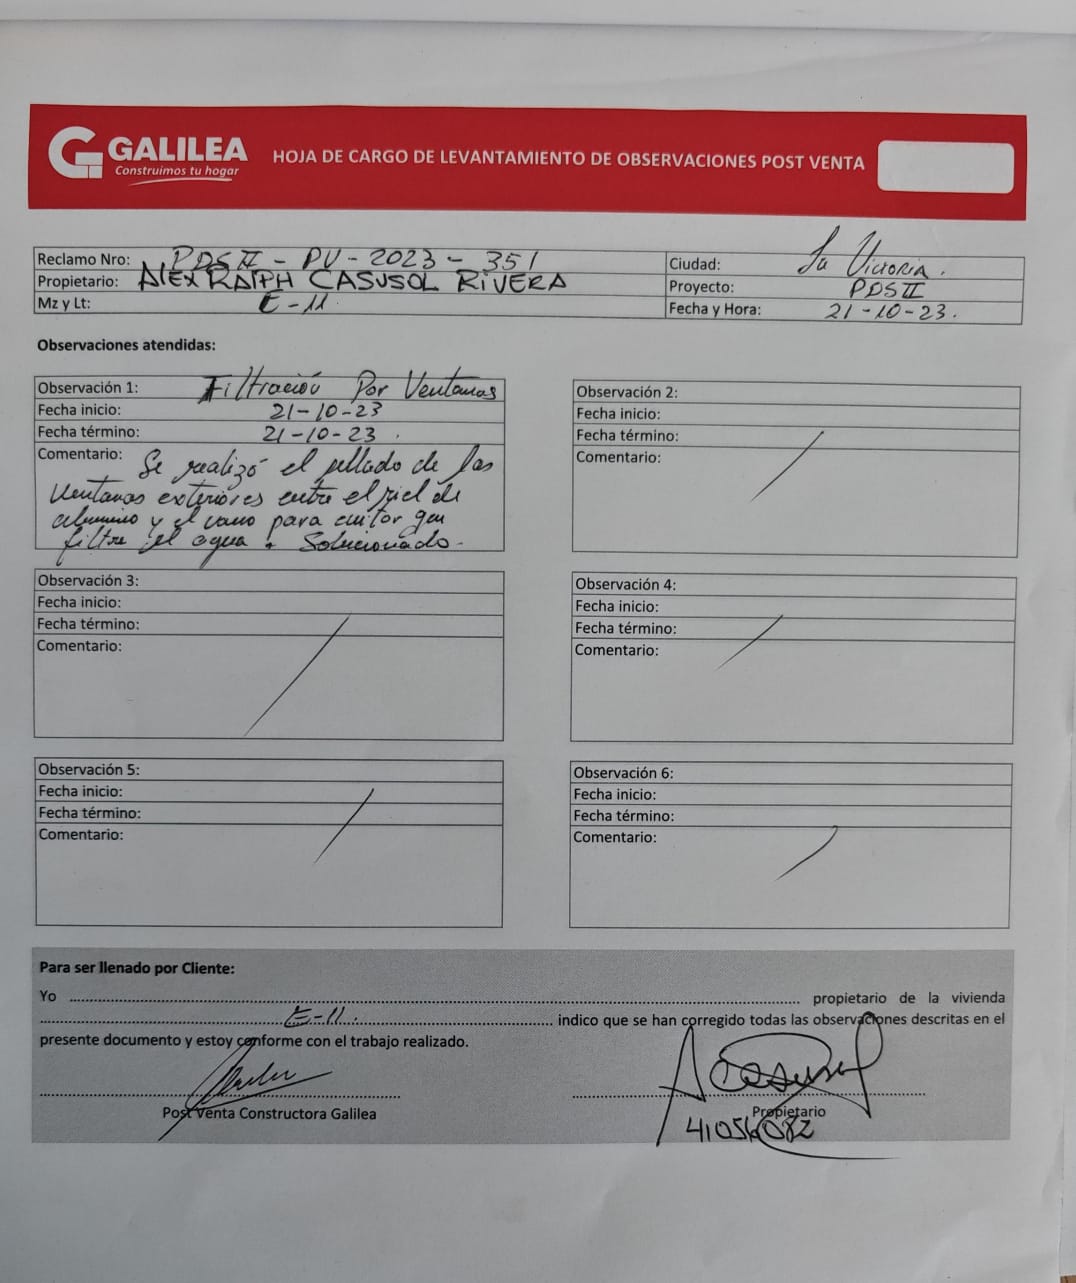 GALILEA
Construimos tu hogar
HOJA DE CARGO DE LEVANTAMIENTO DE OBSERVACIONES POST VENTA
Reclamo Nro: PDS II - PV - 2023 - 351
Propietario: ALEX RALPH CASUSOL RIVERA
Mz y Lt: E - 11
Ciudad: La Victoria.
Proyecto: PDS II
Fecha y Hora: 21-10-23.
Observaciones atendidas:
Observación 1: Filtración Por Ventanas
Fecha inicio: 21-10-23
Fecha término: 21-10-23.
Comentario: Se realizó el sellado de las
Ventanas exteriores entre el riel de
aluminio y el vano para evitar que
filtre el agua. Solucionado.
Observación 2:
Fecha inicio:
Fecha término:
Comentario:
Observación 3:
Fecha inicio:
Fecha término:
Comentario:
Observación 4:
Fecha inicio:
Fecha término:
Comentario:
Observación 5:
Fecha inicio:
Fecha término:
Comentario:
Observación 6:
Fecha inicio:
Fecha término:
Comentario:
Para ser llenado por Cliente:
Yo ........ propietario de la vivienda
E-11. indico que se han corregido todas las observaciones descritas en el
presente documento y estoy conforme con el trabajo realizado.
Post Venta Constructora Galilea
ACasusol
Propietario
41056082